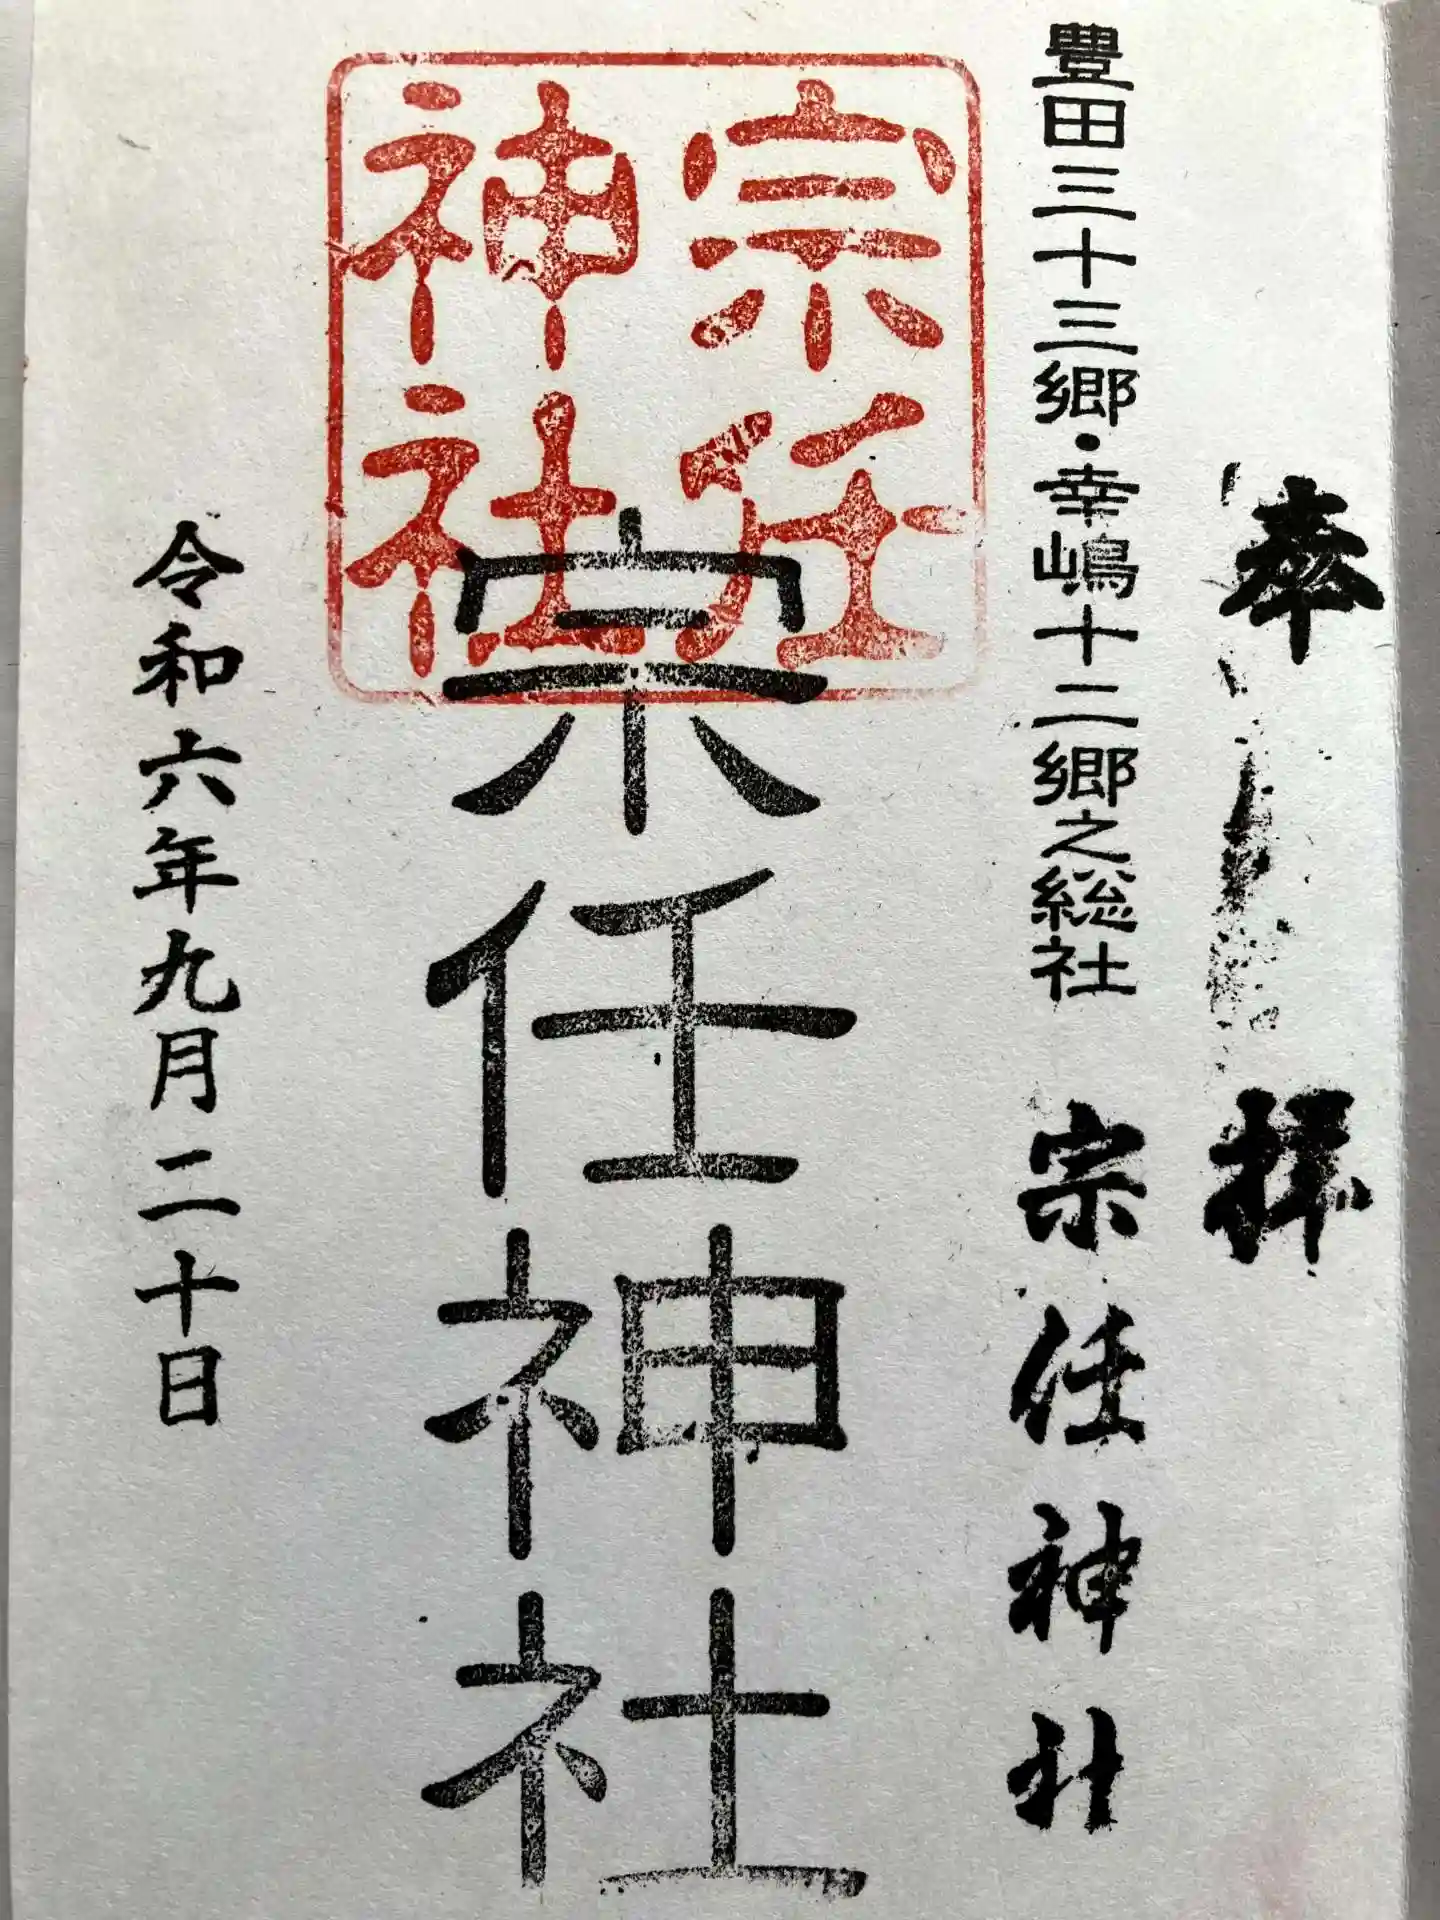 奉拝
豊田三十三郷・幸嶋十二郷之総社 宗任神社
宗任神社
宗任
神社
令和六年九月二十日